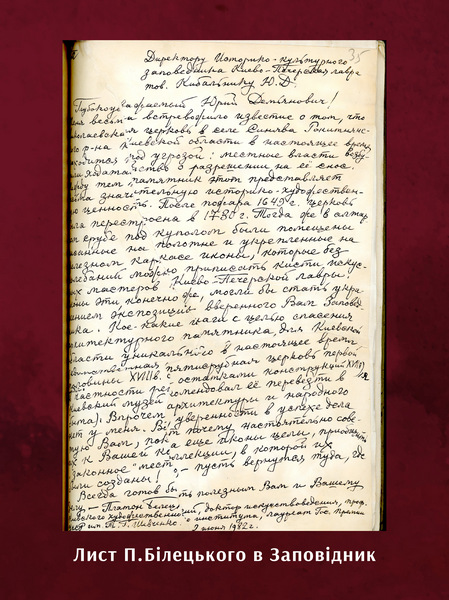 35
Директору Историко-культурного
заповедника Киево-Печерская лавра
тов. Кибальнику Ю.Д.
Глубокоуважаемый Юрий Демьянович!
весьма встревожило известие о том, что
николаевская церковь в селе Синява Рокитнянс-
р-на Киевской области в настоящее время
находится под угрозой: местные власти
ходатайство о разрешении на её снос.
тем памятник этот представляет
значительную историко-художествен-
ценность. После пожара 1649 г. церковь
перестроена в 1730 г. Тогда же в алтар
срубе под куполом были помещены
писанные на полотне и укрепленные на
железном каркасе иконы, которые без
колебаний можно приписать кисти искус-
мастеров Киево-Печерской лавры.
эти, конечно же, могли бы стать укра
экспозиции вверенного Вам Заповед-
Кое-какие шаги с целью спасения
архитектурного памятника, для Киевской
области уникального в настоящее время
пятисрубная церковь первой
половины XVIII в. с остатками конструкций XVII
частности рекомендовал её перевезти в
Киевский музей архитектуры и народного
Впрочем уверенности в успехе дела
нет у меня. Вот почему настоятельно сове-
тую Вам, пока еще иконы целы, приобщить
их к Вашей коллекции, в которой их
законное место, – пусть вернутся туда, где
были созданы!
Всегда готов быть полезным Вам и Вашему
– Платон Белецкий, доктор искусствоведения, проф.
Киевского художественного института, лауреат Гос. премии
им. Т. Г. Шевченко.
2 июня 1982 г.
Лист П.Білецького в Заповідник